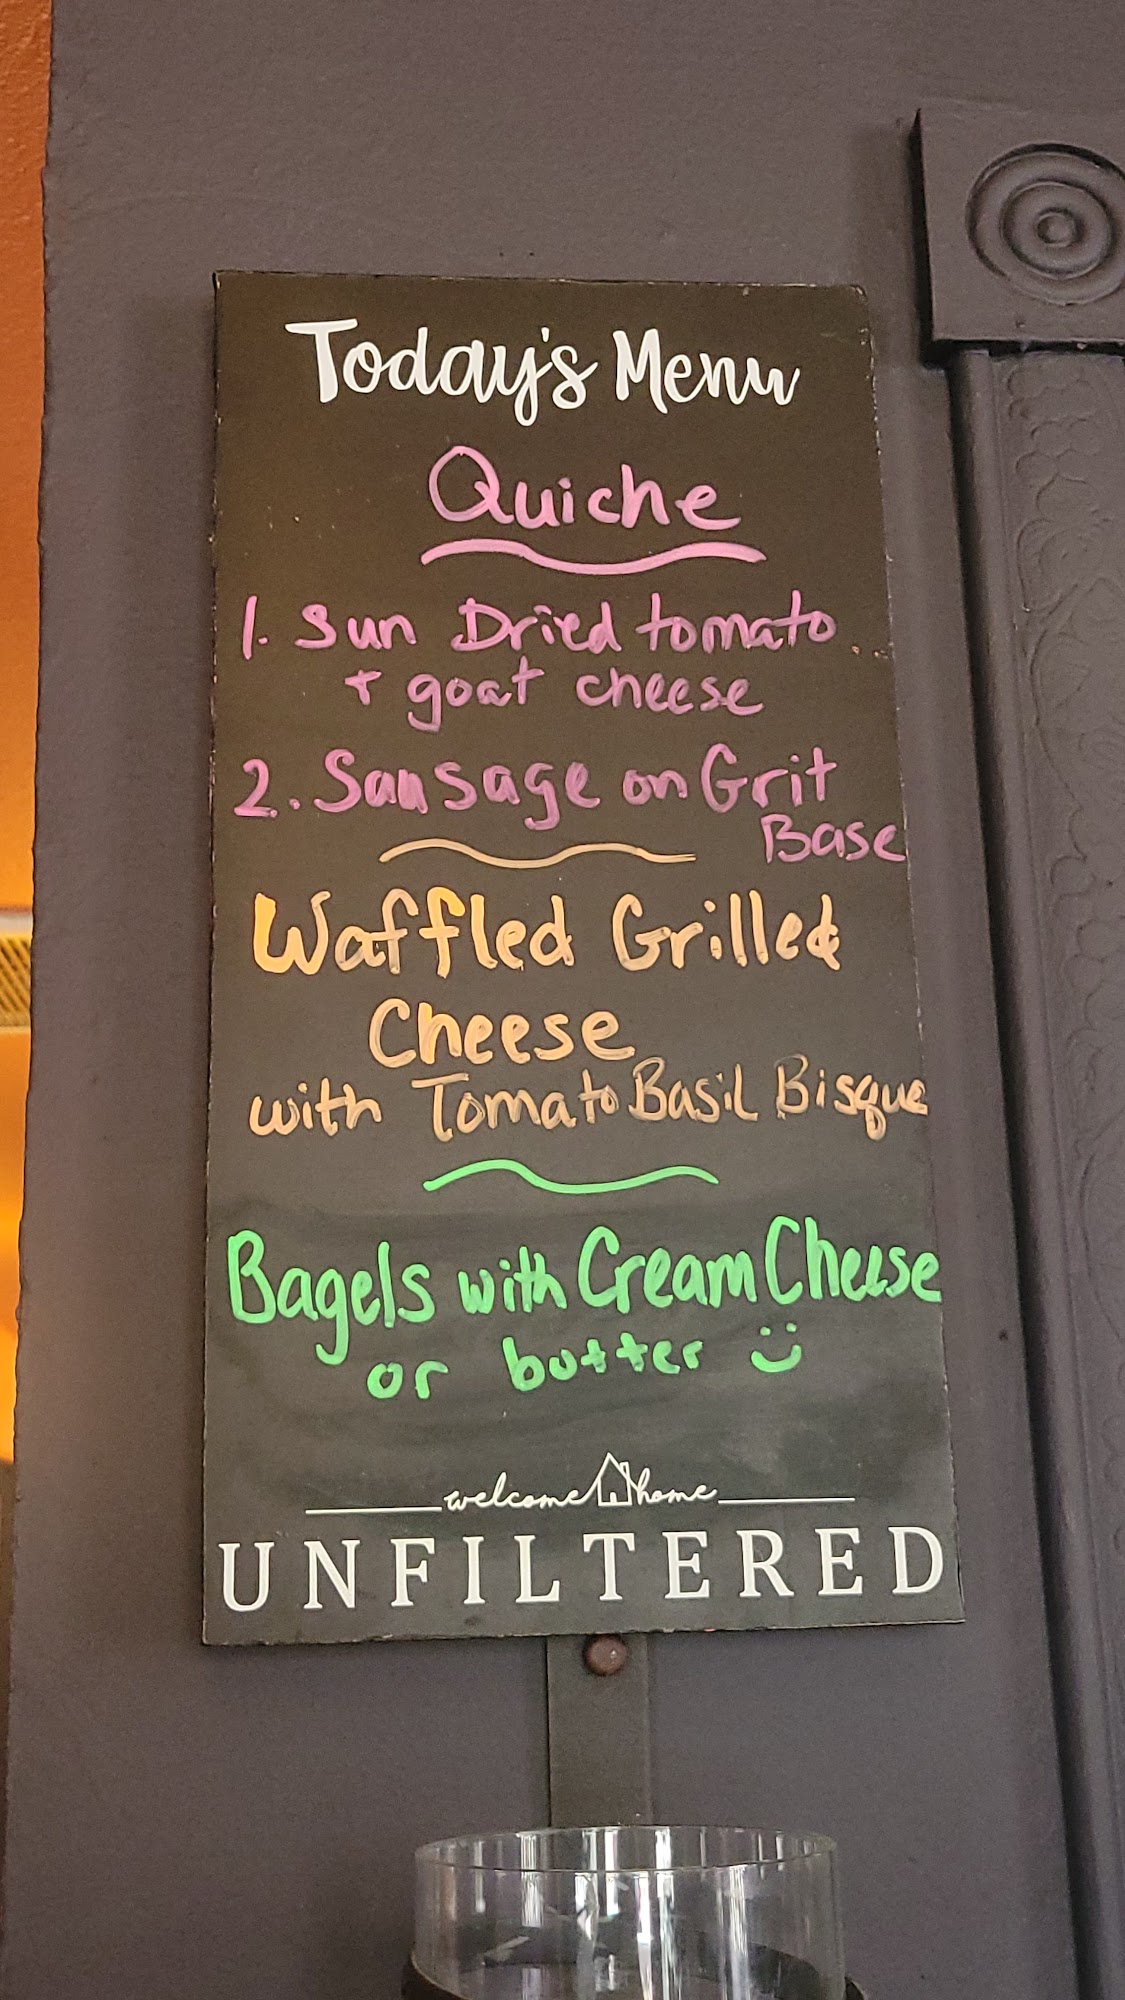 Today's Menu
Quiche
1. Sun Dried tomato
+ goat cheese
2. Sausage on Grit
Base
Waffled Grilled
Cheese
with Tomato Basil Bisque
Bagels with Cream Cheese
or butter
welcome home
UNFILTERED